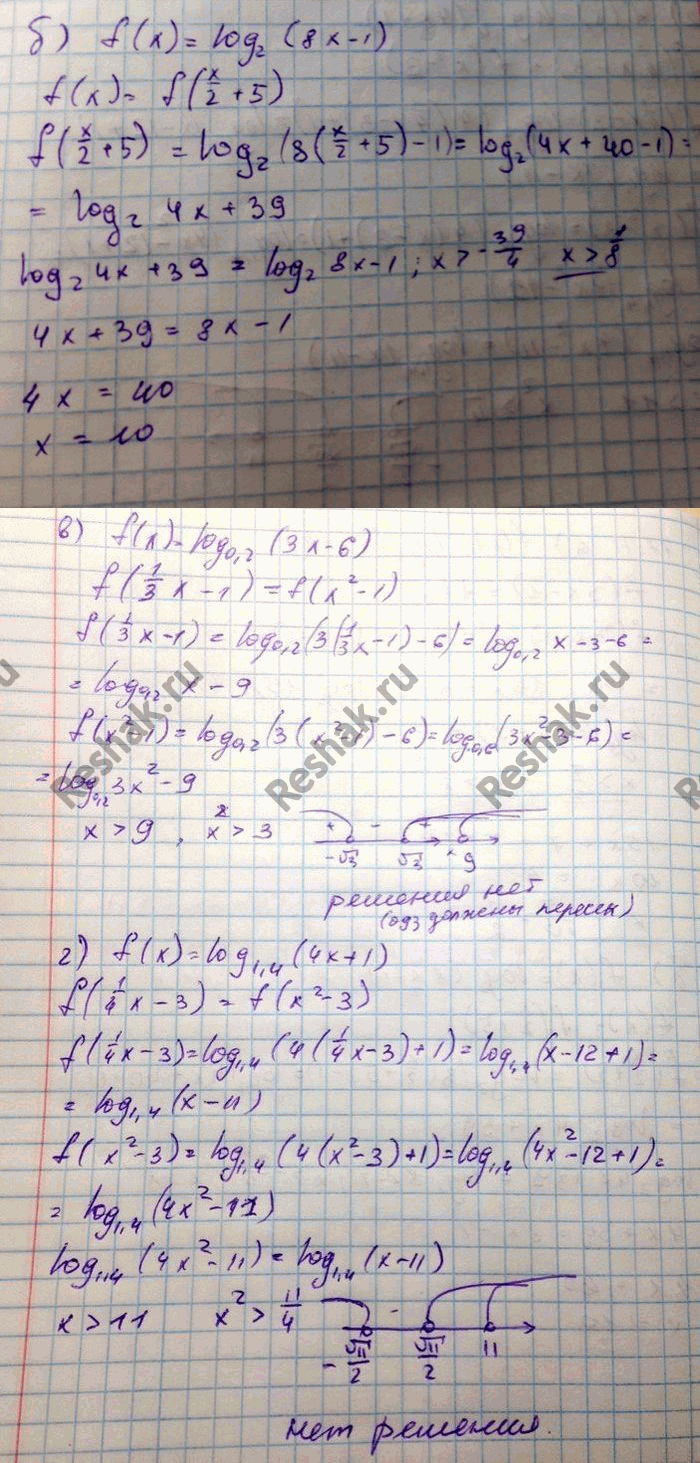 б) f(x) = log₂ (8x-1)
f(x) = f(x/2 + 5)
f(x/2 + 5) = log₂ (8(x/2 + 5) - 1) = log₂(4x + 40 - 1) =
= log₂ 4x + 39
log₂ 4x + 39 = log₂ 8x - 1 ; x > -39/4 x > 1/8
4x + 39 = 8x - 1
4x = 40
x = 10
в) f(x) = log₀,₂ (3x - 6)
f(1/3 x - 1) = f(x² - 1)
f(1/3 x - 1) = log₀,₂ (3(1/3 x - 1) - 6) = log₀,₂ x - 3 - 6 =
= log₀,₂ x - 9
f(x² - 1) = log₀,₂ (3(x² - 1) - 6) = log₀,₂ (3x² - 3 - 6) =
= log₀,₂ 3x² - 9
x > 9 , x² > 3
+ - +
-√3 √3 9
решения нет
(одз должены пересы)
г) f(x) = log₁,₄ (4x + 1)
f(1/4 x - 3) = f(x² - 3)
f(1/4 x - 3) = log₁,₄ (4(1/4 x - 3) + 1) = log₁,₄ (x - 12 + 1) =
= log₁,₄ (x - 11)
f(x² - 3) = log₁,₄ (4(x² - 3) + 1) = log₁,₄ (4x² - 12 + 1) =
= log₁,₄ (4x² - 11)
log₁,₄ (4x² - 11) = log₁,₄ (x - 11)
x > 11 x² > 11/4
-
-√11/2 √11/2 11
нет решения.
Reshak.ru
Reshak.ru
Reshak.ru